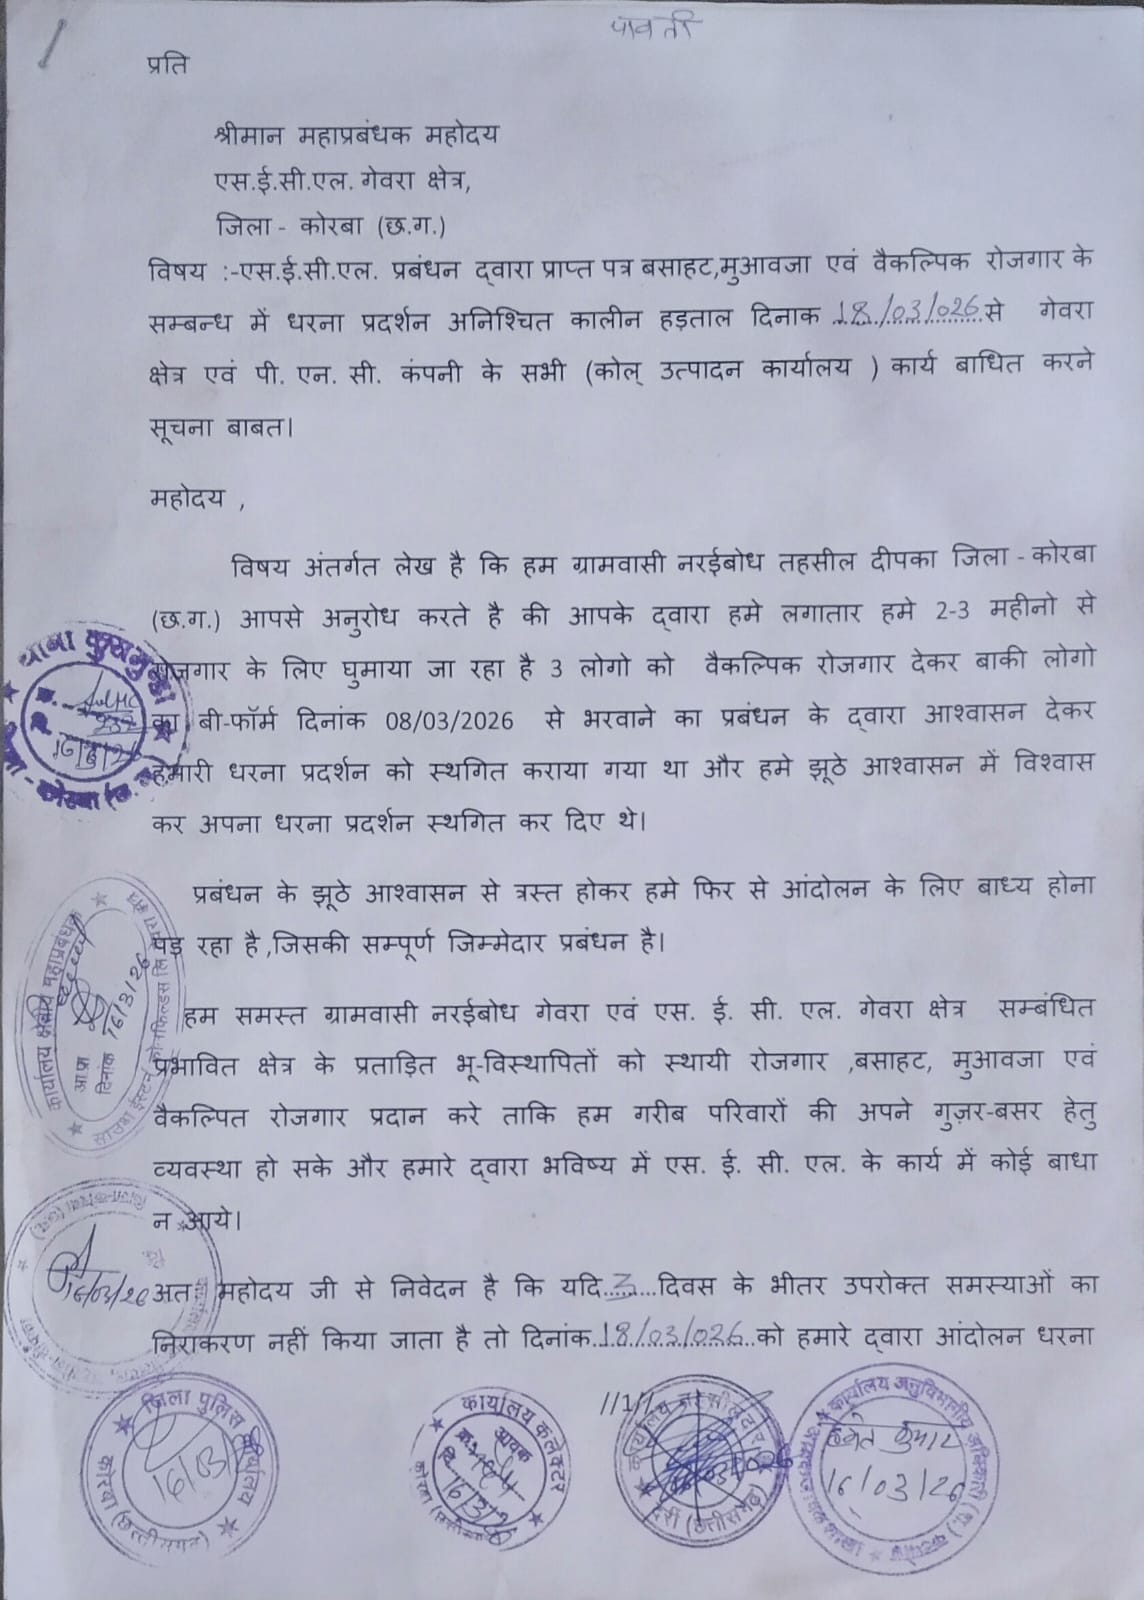 पावती
प्रति
श्रीमान महाप्रबंधक महोदय
एस.ई.सी.एल. गेवरा क्षेत्र,
जिला - कोरबा (छ.ग.)
विषय :-एस.ई.सी.एल. प्रबंधन द्वारा प्राप्त पत्र बसाहट,मुआवजा एवं वैकल्पिक रोजगार के
सम्बन्ध में धरना प्रदर्शन अनिश्चित कालीन हड़ताल दिनाक 18/03/026 से गेवरा
क्षेत्र एवं पी. एन. सी. कंपनी के सभी (कोल् उत्पादन कार्यालय ) कार्य बाधित करने
सूचना बाबत।
महोदय ,
विषय अंतर्गत लेख है कि हम ग्रामवासी नरईबोध तहसील दीपका जिला - कोरबा
(छ.ग.) आपसे अनुरोध करते है की आपके द्वारा हमे लगातार हमे 2-3 महीनो से
रोजगार के लिए घुमाया जा रहा है 3 लोगो को वैकल्पिक रोजगार देकर बाकी लोगो
का बी-फॉर्म दिनांक 08/03/2026 से भरवाने का प्रबंधन के द्वारा आश्वासन देकर
हमारी धरना प्रदर्शन को स्थगित कराया गया था और हमे झूठे आश्वासन में विश्वास
कर अपना धरना प्रदर्शन स्थगित कर दिए थे।
प्रबंधन के झूठे आश्वासन से त्रस्त होकर हमे फिर से आंदोलन के लिए बाध्य होना
पड़ रहा है ,जिसकी सम्पूर्ण जिम्मेदार प्रबंधन है।
हम समस्त ग्रामवासी नरईबोध गेवरा एवं एस. ई. सी. एल. गेवरा क्षेत्र सम्बंधित
प्रभावित क्षेत्र के प्रताड़ित भू-विस्थापितों को स्थायी रोजगार ,बसाहट, मुआवजा एवं
वैकल्पित रोजगार प्रदान करे ताकि हम गरीब परिवारों की अपने गुज़र-बसर हेतु
व्यवस्था हो सके और हमारे द्वारा भविष्य में एस. ई. सी. एल. के कार्य में कोई बाधा
न आये।
अतः महोदय जी से निवेदन है कि यदि 3 दिवस के भीतर उपरोक्त समस्याओं का
निराकरण नहीं किया जाता है तो दिनांक 18/03/026 को हमारे द्वारा आंदोलन धरना
थाना कुसमुण्डा
16/3/26
कार्यालय क्षेत्रीय महाप्रबंधक
दिनांक 16/3/26
16/03/26
जिला पुलिस कार्यालय
16/03/
कोरबा (छत्तीसगढ़)
कार्यालय कलेक्टर
आवक
16/3/26
कोरबा
कार्यालय तहसीलदार
(छत्तीसगढ़)
कार्यालय अनुविभागीय अधिकारी (रा.)
कुमार
16/03/26